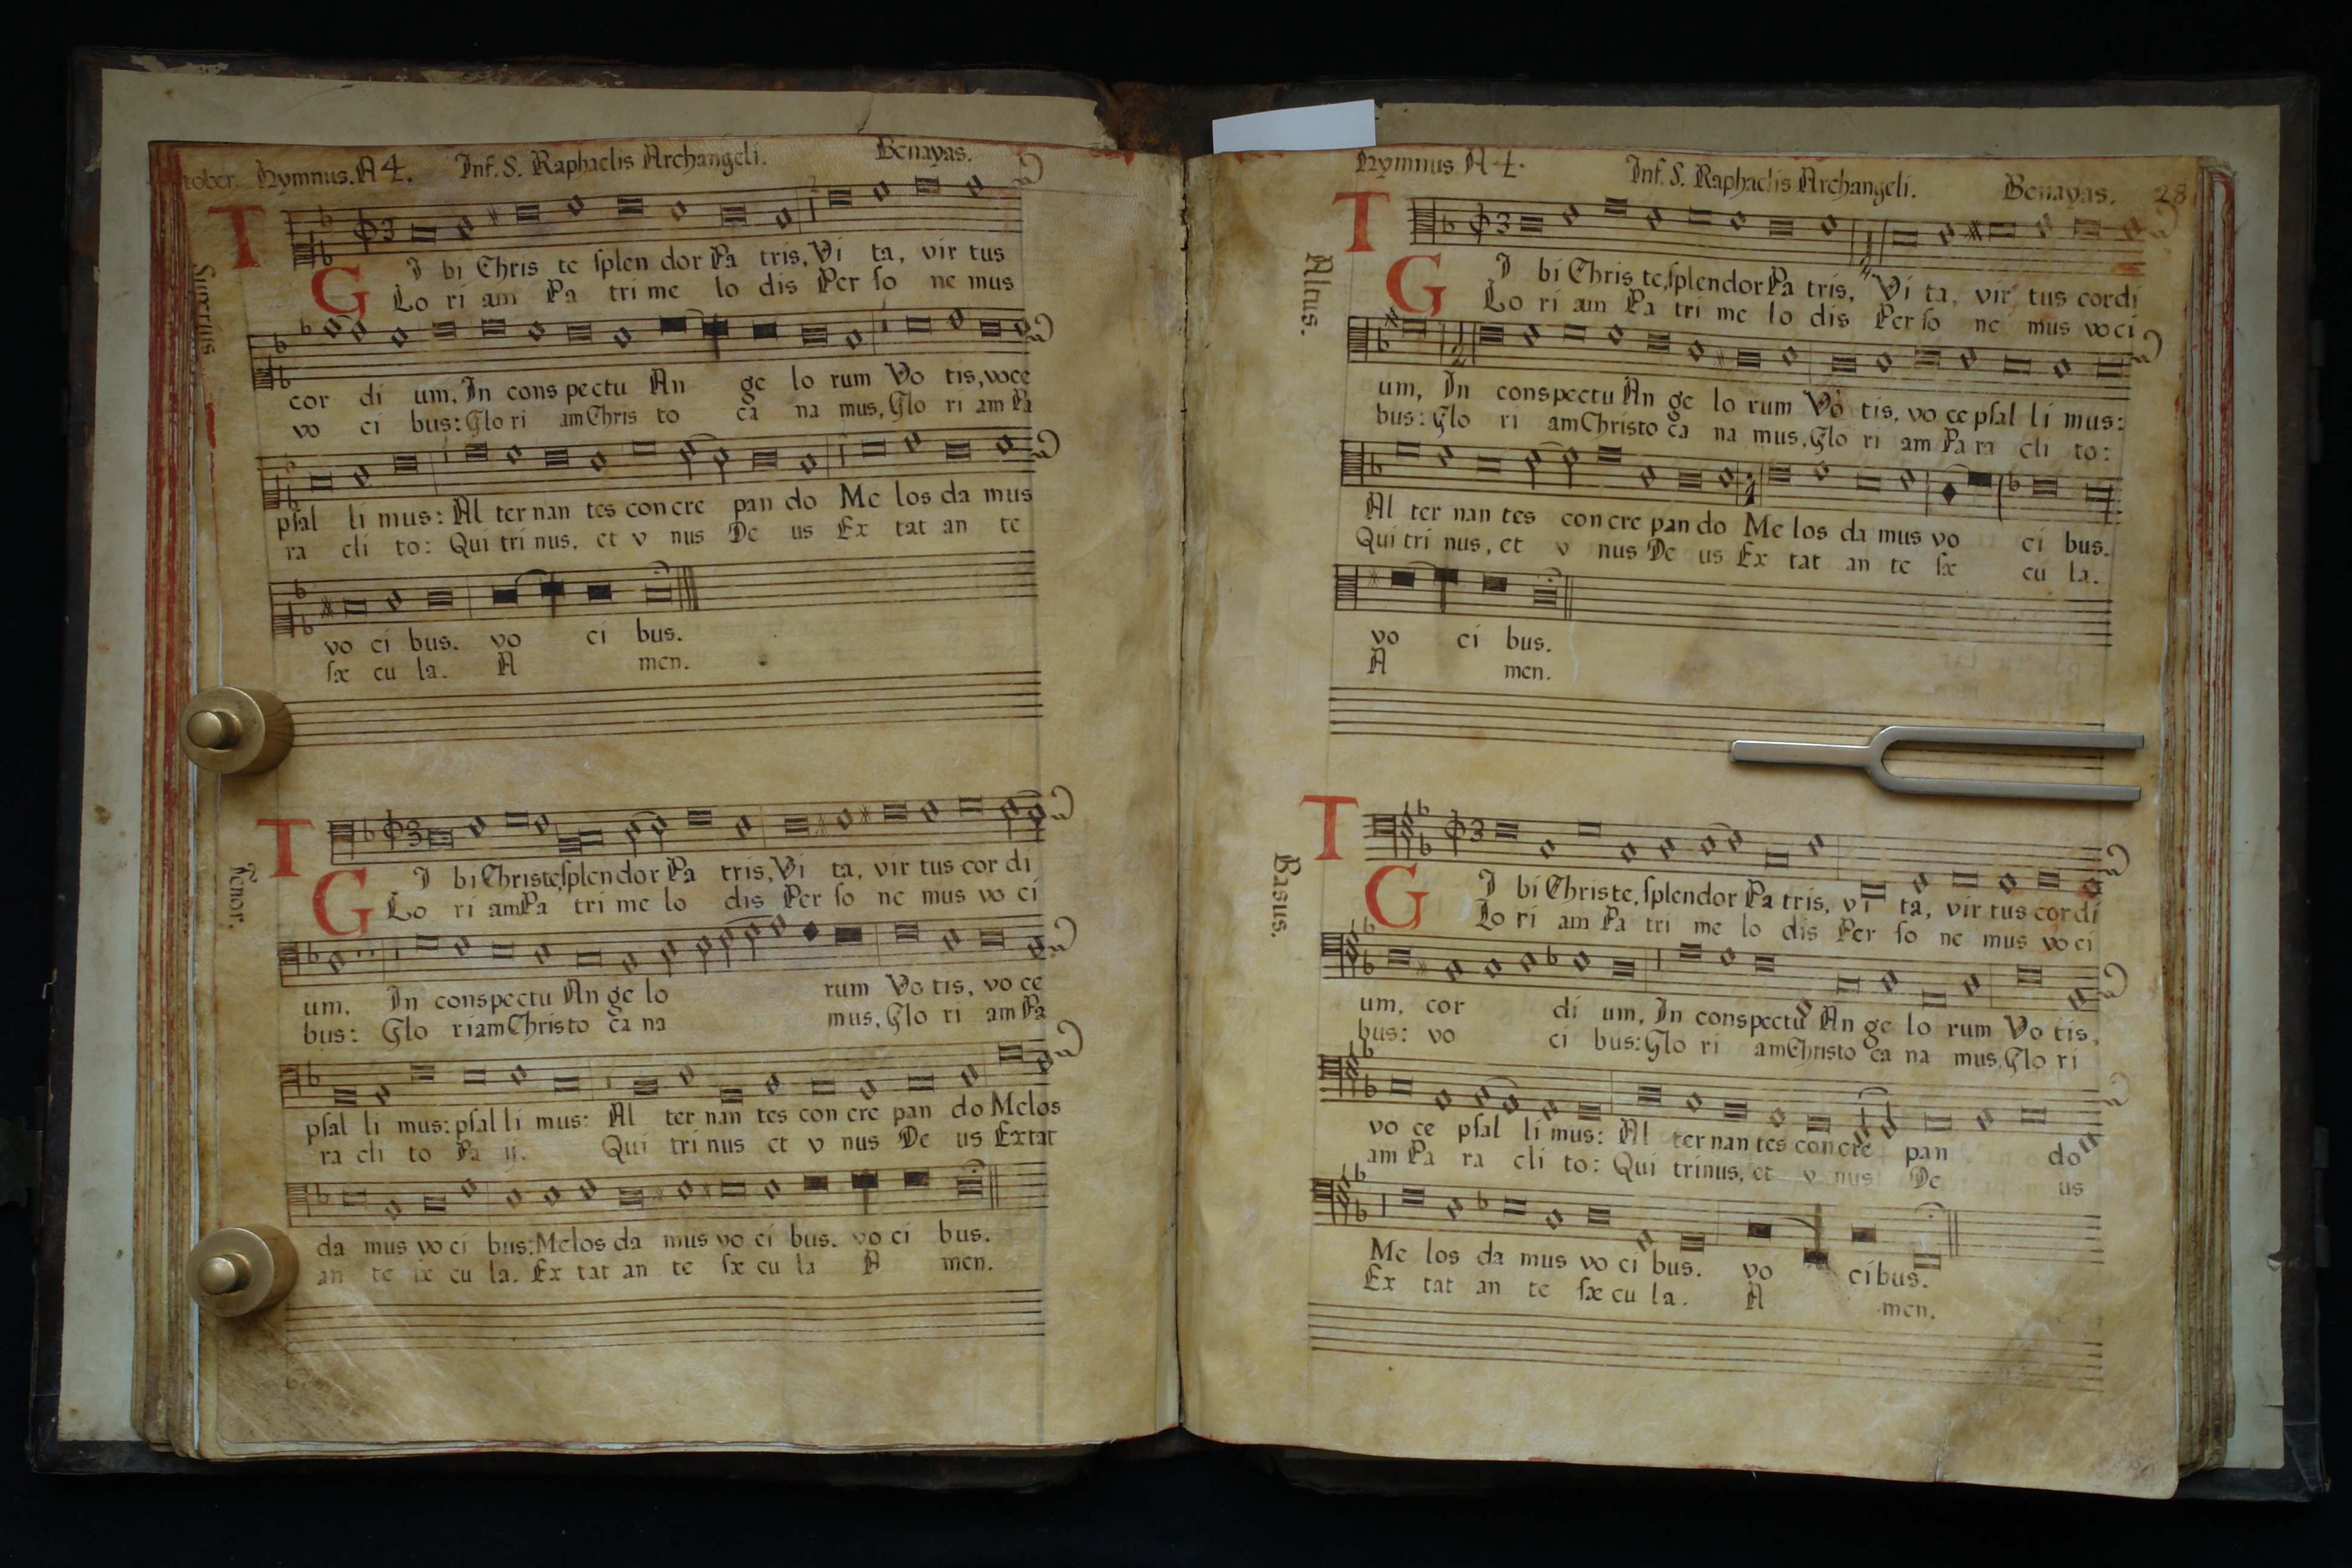 tober. Hymnus. A 4. Inf. S. Raphaelis Archangeli. Benayas.
Superius
TI bi Chris te ſplen dor Pa tris, Vi ta, vir tus
GLo ri am Pa tri me lo dis Per ſo ne mus
cor di um, In cons pectu An ge lo rum Vo tis, voce
vo ci bus: Glo ri am Chris to ca na mus, Glo ri am Pa
pſal li mus: Al ter nan tes con cre pan do Me los da mus
ra cli to: Qui tri nus, et v nus De us Ex tat an te
vo ci bus. vo ci bus.
ſæ cu la. A men.
Tenor.
TI bi Christe, ſplendor Pa tris, Vi ta, vir tus cor di
GLo ri am Pa tri me lo dis Per ſo ne mus vo ci
um. In conspectu An ge lo rum Vo tis, vo ce
bus: Glo riam Christo ca na mus, Glo ri am Pa
pſal li mus: pſal li mus: Al ter nan tes con cre pan do Melos
ra cli to Pa ij. Qui tri nus et v nus De us Extat
da mus vo ci bus: Melos da mus vo ci bus. vo ci bus.
an te ſæ cu la. Ex tat an te ſæ cu la A men.
Hymnus A 4. Inf. S. Raphaelis Archangeli. Benayas. 28
Altus.
TI bi Chris te, ſplendor Pa tris, Vi ta, vir tus cordi
GLo ri am Pa tri me lo dis Per ſo ne mus vo ci
um, In conspectu An ge lo rum Vo tis, vo ce pſal li mus:
bus: Glo ri am Christo ca na mus, Glo ri am Pa ra cli to:
Al ter nan tes con cre pan do Me los da mus vo ci bus.
Qui tri nus, et v nus De us Ex tat an te ſæ cu la.
vo ci bus.
A men.
Basus.
TI bi Christe, ſplendor Pa tris, vi ta, vir tus cor di
GLo ri am Pa tri me lo dis Per ſo ne mus vo ci
um, cor di um, In conspectu An ge lo rum Vo tis,
bus: vo ci bus: Glo ri am Christo ca na mus, Glo ri
vo ce pſal li mus: Al ter nan tes con cre pan do
am Pa ra cli to: Qui trinus, et v nus De us
Me los da mus vo ci bus. vo ci bus.
Ex tat an te ſæ cu la. A men.